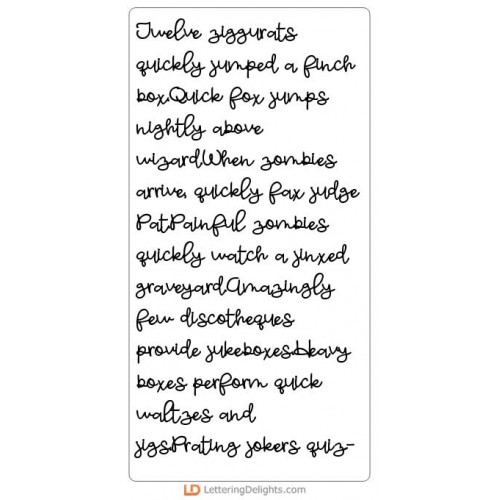 Twelve ziggurats
quickly jumped a finch
box.Quick fox jumps
nightly above
wizard.When zombies
arrive, quickly fax judge
Pat.Painful zombies
quickly watch a jinxed
graveyard.Amazingly
few discotheques
provide jukeboxes.Heavy
boxes perform quick
waltzes and
jigs.Prating jokers quiz-
LD LetteringDelights.com